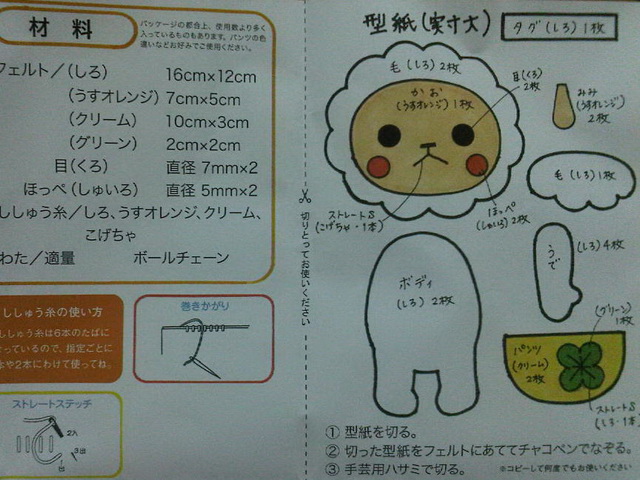 材料
パッケージの都合上、使用数より多く
入っているものもあります。パンツの色
違いなどお好みでご使用ください。
フェルト／（しろ） 16cm×12cm
（うすオレンジ） 7cm×5cm
（クリーム） 10cm×3cm
（グリーン） 2cm×2cm
目（くろ） 直径 7mm×2
ほっぺ（しゅいろ） 直径 5mm×2
ししゅう糸／しろ、うすオレンジ、クリーム、
こげちゃ
わた／適量 ボールチェーン
ししゅう糸の使い方
ししゅう糸は6本のたばに
なっているので、指定ごとに
本や2本にわけて使ってね。
巻きかがり
ストレートステッチ
2入
3出
1出
切りとってお使いください
型紙（実寸大）
タグ（しろ）1枚
毛（しろ）2枚
かお
（うすオレンジ）1枚
目（くろ）
2枚
みみ
（うすオレンジ）
2枚
毛（しろ）1枚
ストレートS
（こげちゃ・1本）
ほっぺ
（しゅいろ）2枚
ボディ
（しろ）2枚
うで
（しろ）4枚
（グリーン）
1枚
パンツ
（クリーム）
2枚
ストレートS
（しろ・1本）
① 型紙を切る。
② 切った型紙をフェルトにあててチャコペンでなぞる。
③ 手芸用ハサミで切る。
※コピーして何度でもお使いください